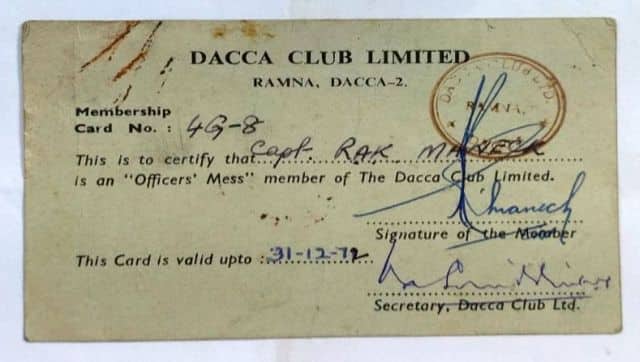 DACCA CLUB LIMITED
RAMNA, DACCA-2.
DACCA CLUB LTD.
RAMNA,
Membership
Card No. : 4G-8
This is to certify that Capt. RAK MANECK
is an "Officers' Mess" member of The Dacca Club Limited.
Maneck
Signature of the Member
This Card is valid upto : 31-12-72
Secretary, Dacca Club Ltd.